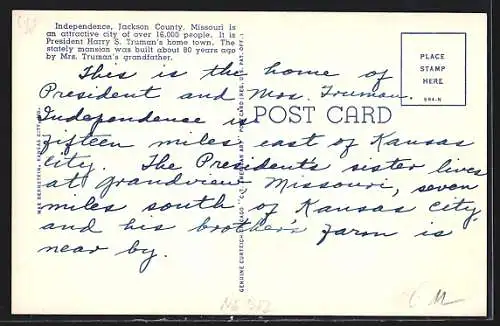 Independence, Jackson County, Missouri is
an attractive city of over 16,000 people. It is
President Harry S. Truman's home town. The
stately mansion was built about 80 years ago
by Mrs. Truman's grandfather.
PLACE
STAMP
HERE
POST CARD
This is the home of
President and Mrs. Truman.
Independence is
fifteen miles east of Kansas
City. The President's sister lives
at Grandview Missouri, seven
miles south of Kansas City,
and his brothers farm is
near by.
MAX BERNSTEIN, KANSAS CITY, MO.